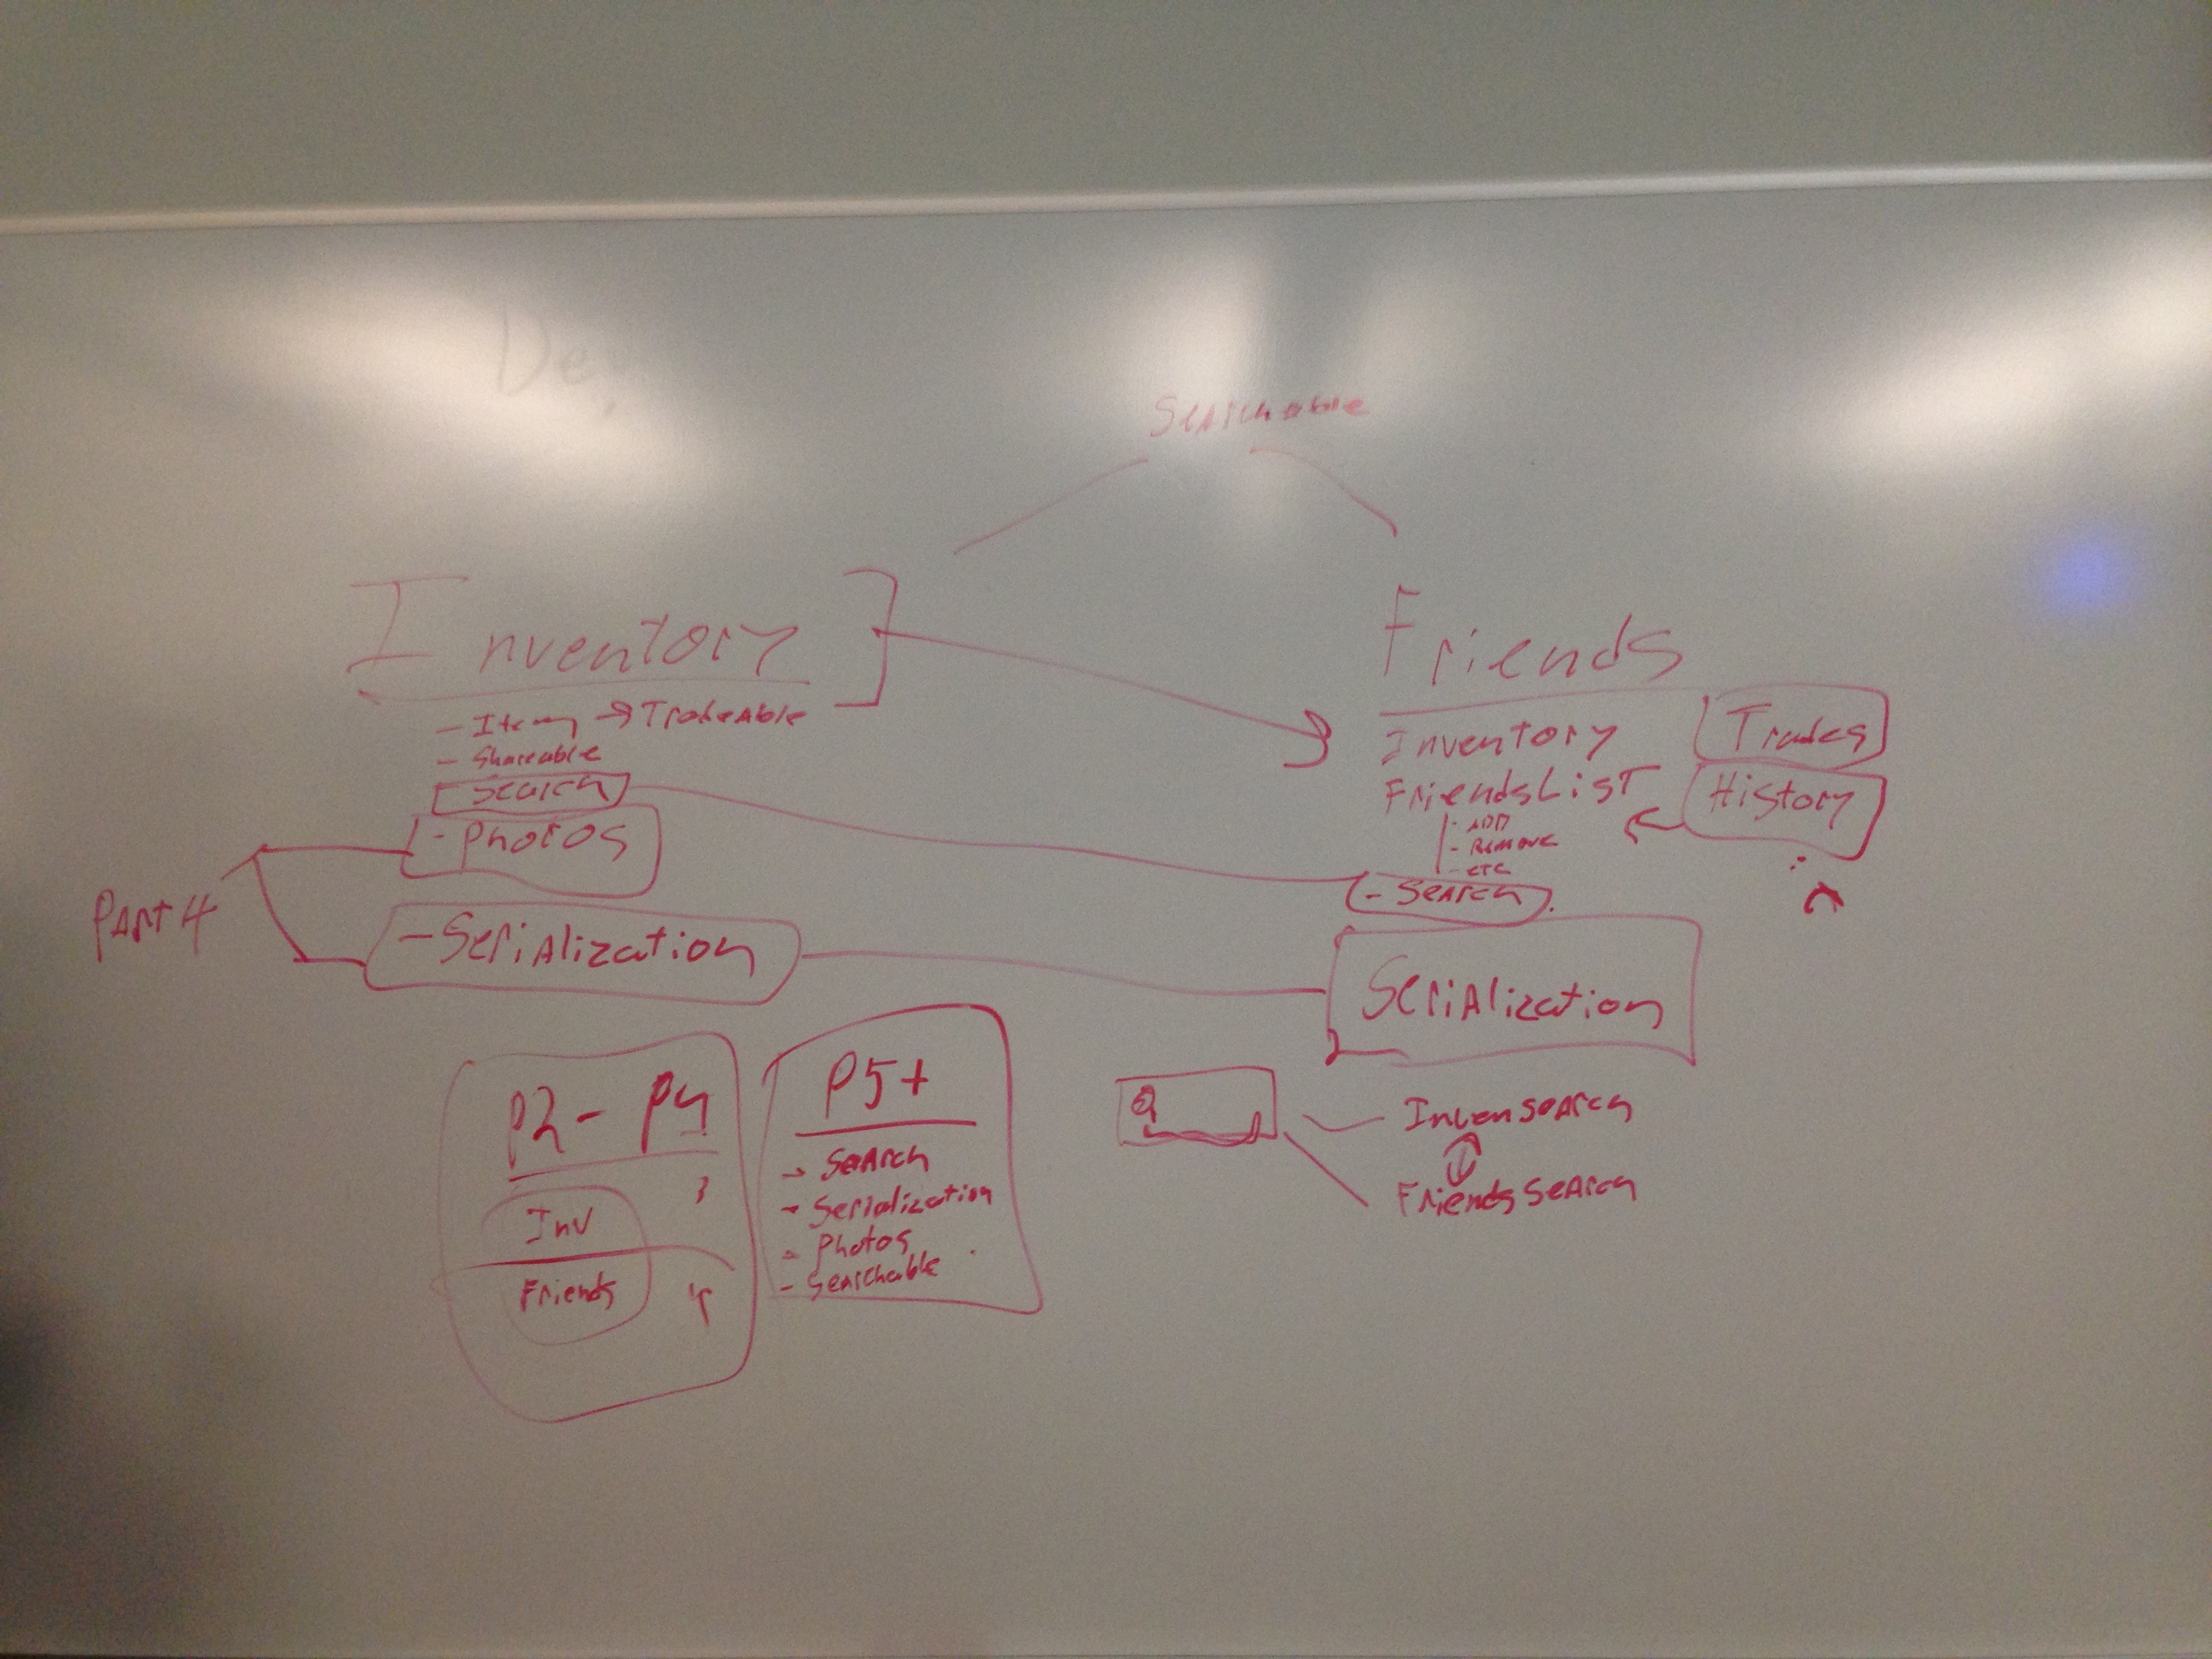 De
Searchable
Inventory
- Item → Tradeable
- Shareable
Search
- Photos
- Serialization
Part 4
Friends
Inventory
FriendsList
- ADD
- Remove
- etc
- Search
Serialization
Trades
History
P2 - P4
Inv
Friends
P5+
- Search
- Serialization
- Photos
- Searchable
InvenSearch
FriendsSearch